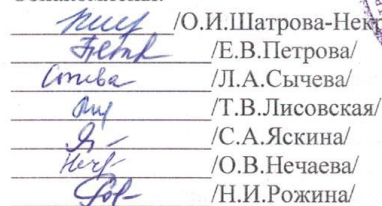 /О.И.Шатрова-Нек
/Е.В.Петрова/
/Л.А.Сычева/
/Т.В.Лисовская/
/С.А.Яскина/
/О.В.Нечаева/
/Н.И.Рожина/